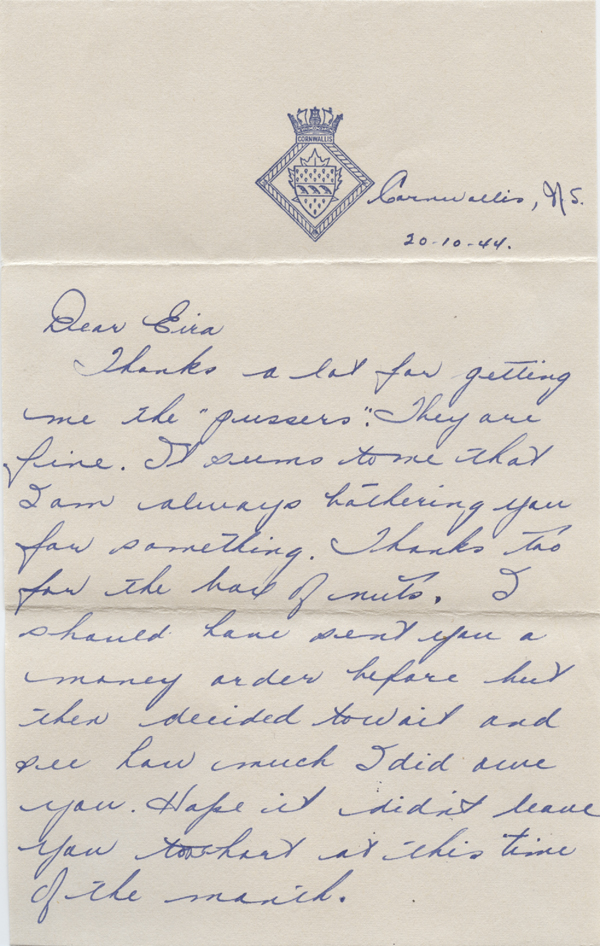 CORNWALLIS
Cornwallis, N.S.
20-10-44.
Dear Eira
Thanks a lot for getting
me the "pussers". They are
fine. It seems to me that
I am always bothering you
for something. Thanks too
for the box of nuts. I
should have sent you a
money order before but
then decided to wait and
see how much I did owe
you. Hope it didn't leave
you too short at this time
of the month.